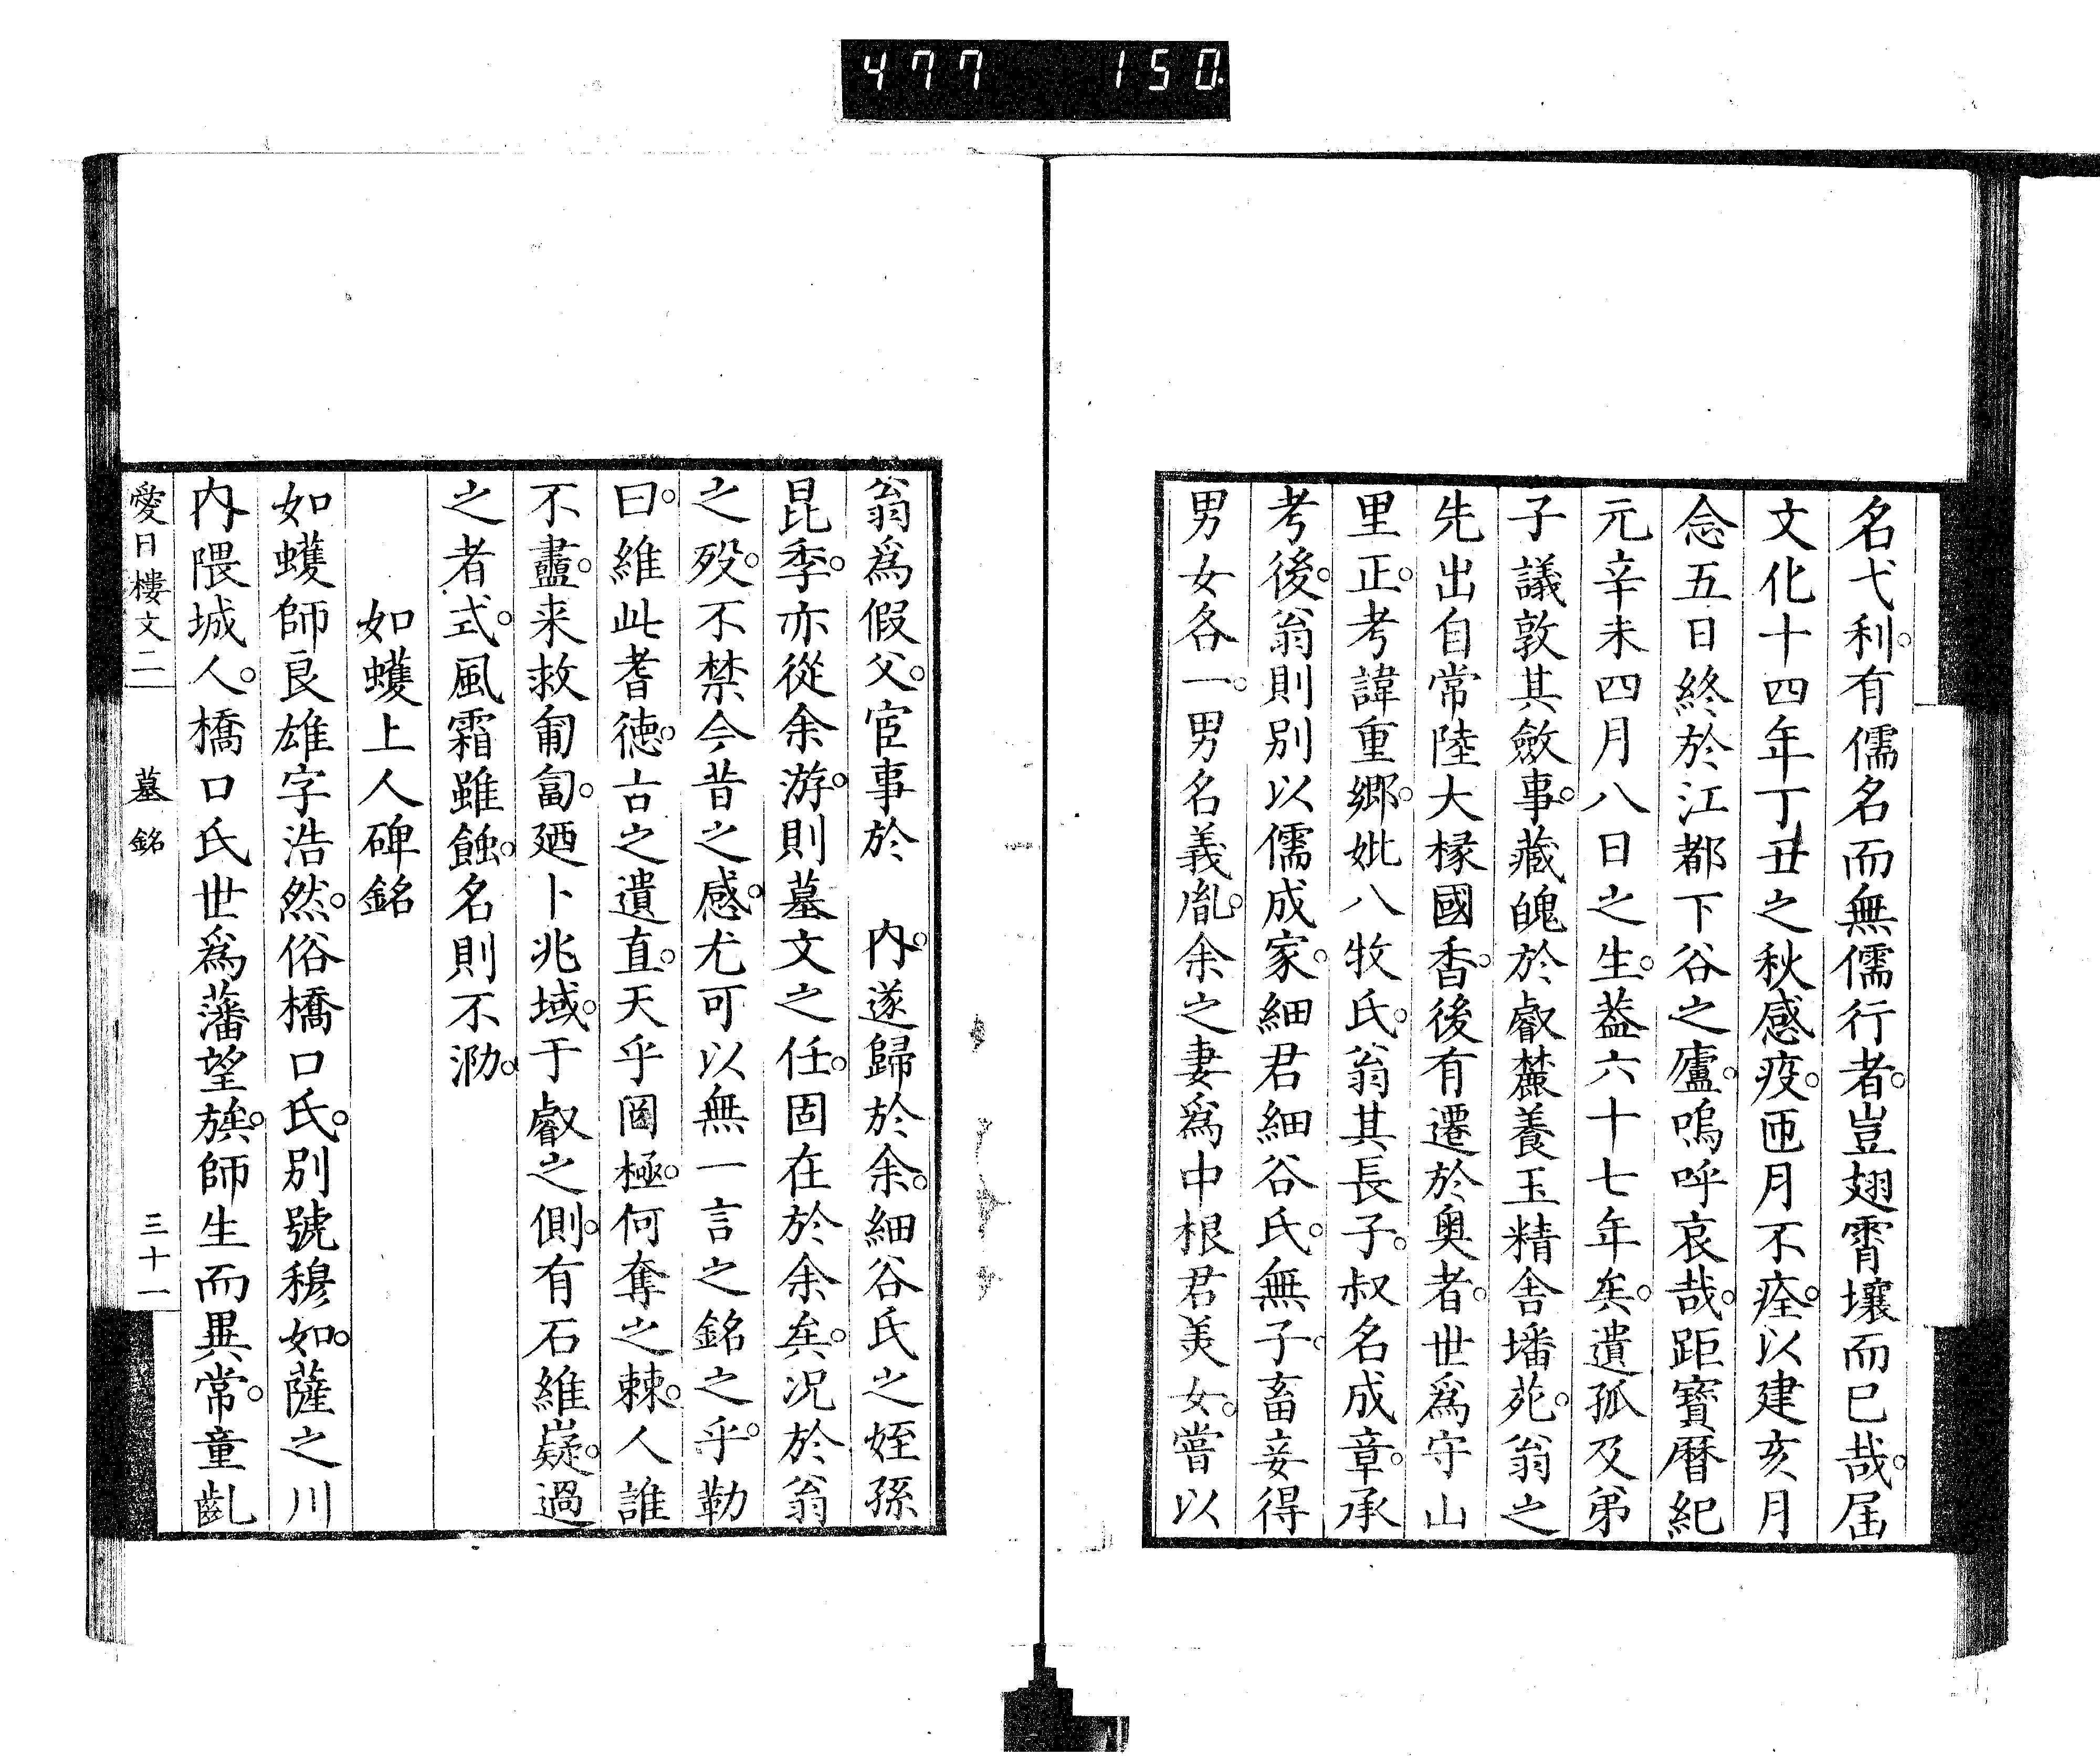 477 150
名弋利。有儒名而無儒行者。豈翅霄壤而已哉。屆
文化十四年丁丑之秋感疫。匝月不痊。以建亥月
念五日終於江都下谷之廬。嗚呼哀哉。距寶曆紀
元辛未四月八日之生。葢六十七年矣。遺孤及弟
子議敦其斂事。藏魄於叡麓養玉精舍墦苑。翁之
先出自常陸大椽國香。後有遷於奧者。世爲守山
里正。考諱重鄉。妣八牧氏。翁其長子。叔名成章。承
考後。翁則別以儒成家。細君細谷氏。無子。畜妾得
男女各一。男名義胤。余之妻爲中根君美女。嘗以
翁爲假父。宦事於 內。遂歸於余。細谷氏之姪孫
昆季。亦從余游。則墓文之任。固在於余矣。況於翁
之歿。不禁今昔之感。尤可以無一言之銘之乎。勒
曰。維此耆德。古之遺直。天乎罔極。何奪之棘。人誰
不盡。来救匍匐。廼卜兆域。于叡之側。有石維嶷。過
之者式。風霜雖蝕。名則不泐。
如蠖上人碑銘
如蠖師良雄字浩然。俗橋口氏。別號穆如。薩之川
內隈城人。橋口氏世爲藩望族。師生而異常。童齓
愛日樓文二 墓銘 三十一